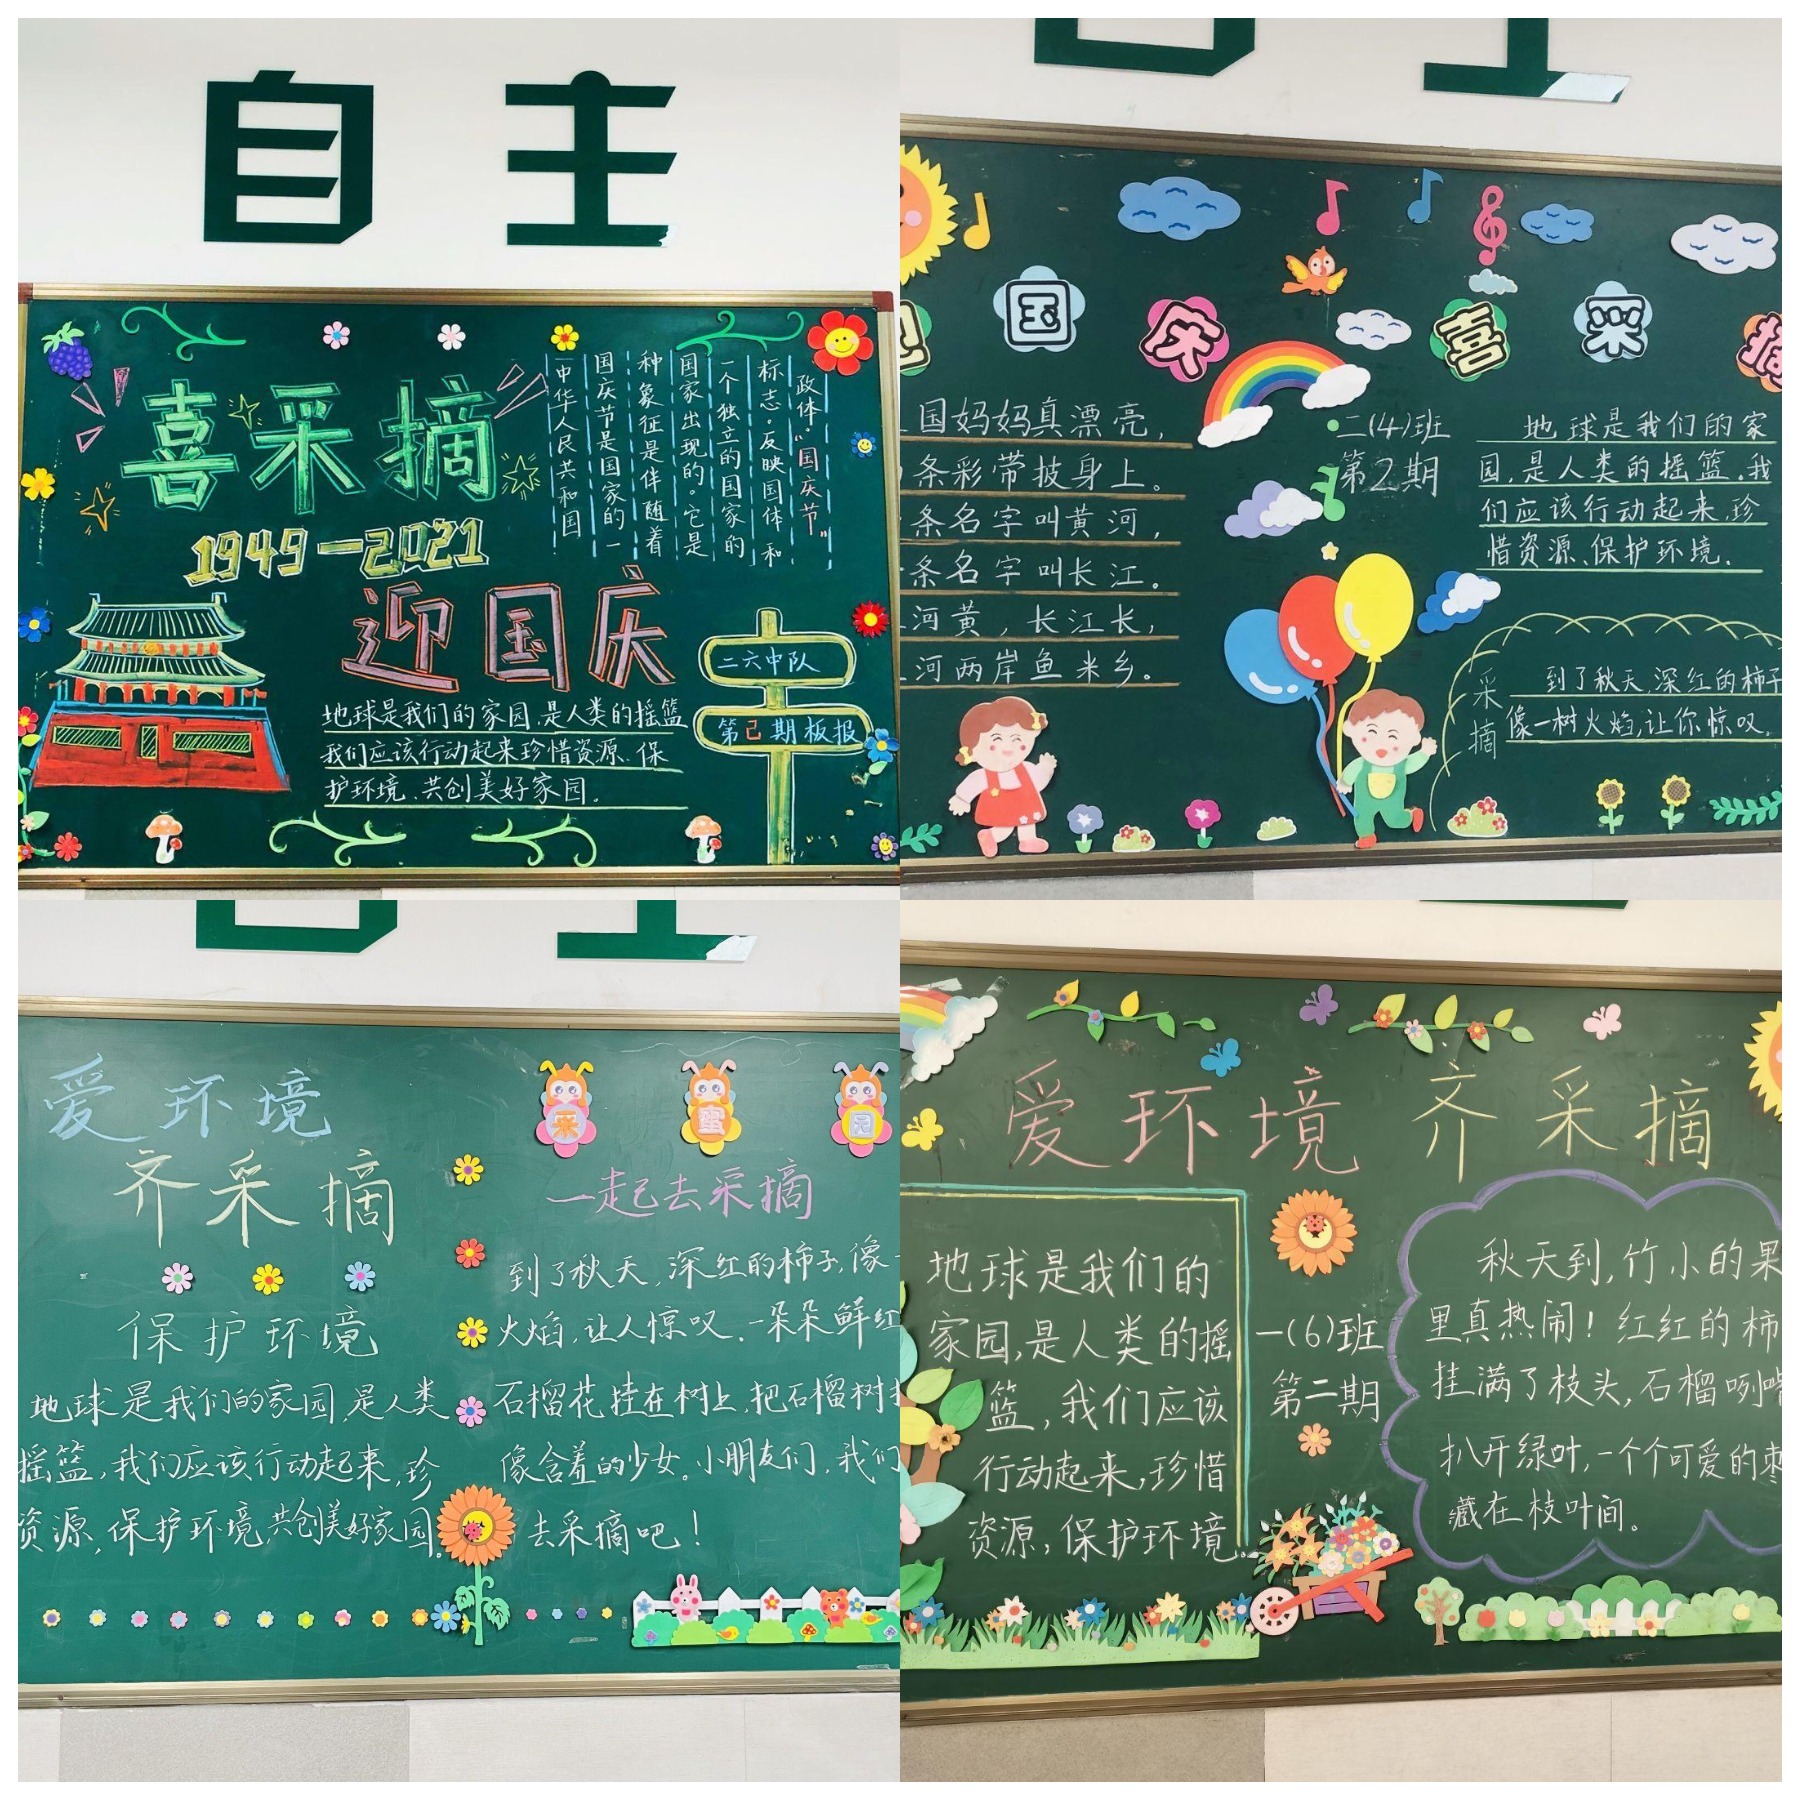 自主
喜采摘
1949—2021
迎国庆
中华人民共和国
国庆节是国家的一
种象征是伴随着
国家出现的。它是
一个独立的国家的
标志。反映国体和
政体“国庆节”
地球是我们的家园.是人类的摇篮
我们应该行动起来珍惜资源.保
护环境、共创美好家园。
二六中队
第己期板报
国庆 喜采摘
国妈妈真漂亮，
条彩带披身上。
条名字叫黄河，
条名字叫长江。
河黄，长江长，
河两岸鱼米乡。
二(4)班
第2期
地球是我们的家
园,是人类的摇篮.我
们应该行动起来,珍
惜资源、保护环境.
采摘
到了秋天,深红的柿子
像一树火焰,让你惊叹.
爱环境
齐采摘
保护环境
地球是我们的家园,是人类
摇篮,我们应该行动起来,珍
资源,保护环境,共创美好家园.
采蜜园
一起去采摘
到了秋天,深红的柿子,像
火焰,让人惊叹.一朵朵鲜红
石榴花挂在树上,把石榴树
像含羞的少女。小朋友们,我们
去采摘吧！
爱环境 齐采摘
地球是我们的
家园,是人类的摇
篮,我们应该
行动起来,珍惜
资源,保护环境.
一(6)班
第二期
秋天到,竹小的果
里真热闹！红红的柿
挂满了枝头,石榴咧嘴
扒开绿叶,一个个可爱的枣
藏在枝叶间。